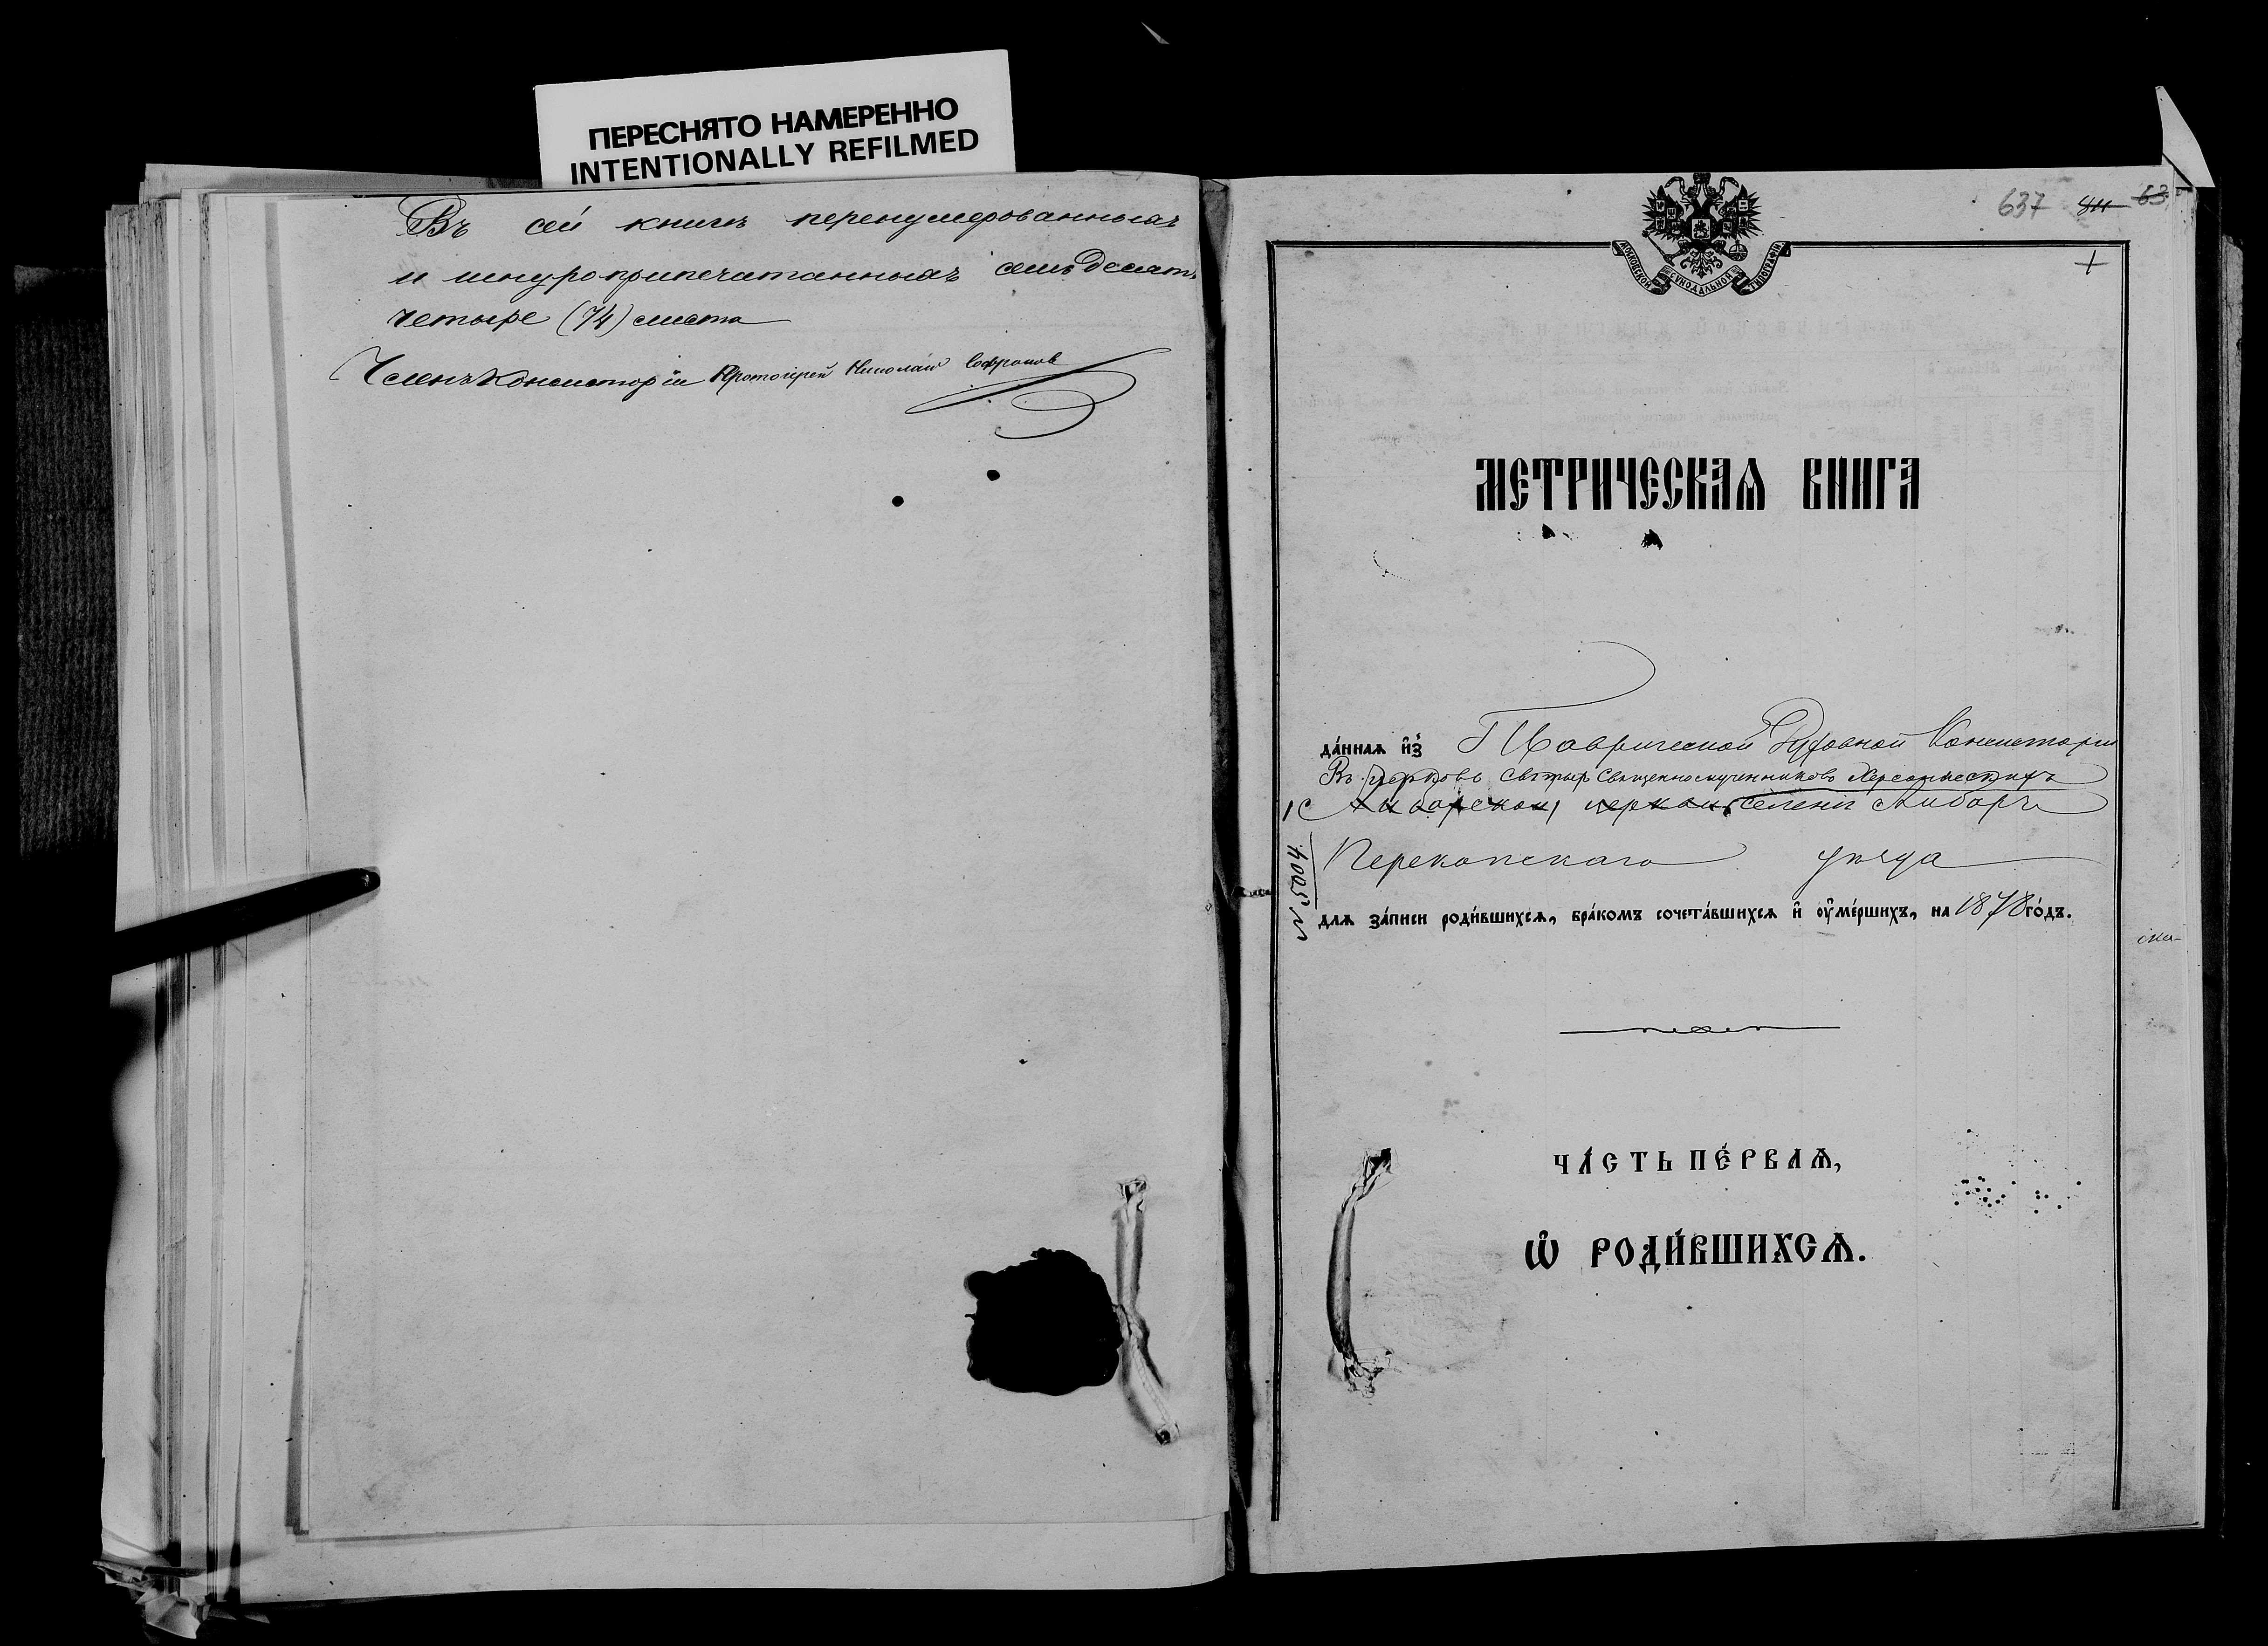 ПЕРЕСНЯТО НАМЕРЕННО
INTENTIONALLY REFILMED
Въ сей книгѣ перенумерованныхъ
и шнуроприпечатанныхъ семьдесятъ
четыре (74) листа
Членъ Консисторіи Протоіерей Николай Софроновъ
637 811 63
МОСКОВСКОЙ СѴНОДАЛЬНОЙ ТИПОГРАФІИ
МЕТРИЧЕСКАѦ КНИГА
да́ннаѧ и҆з̾ Таврической Духовной Консисторіи
Въ церковь Святыхъ Священномучениковъ Херсонескихъ
Айбарской церкви, селенія Айбаръ
Перекопскаго уѣзда
№ 4005
длѧ за́писи роди́вшихсѧ, бра́комъ сочета́вшихсѧ и҆ ᲂу҆ме́ршихъ, на 1878 го́дъ.
ЧА́СТЬ ПЕ́РВАѦ,
Ѡ҆ РОДИ́ВШИХСѦ.